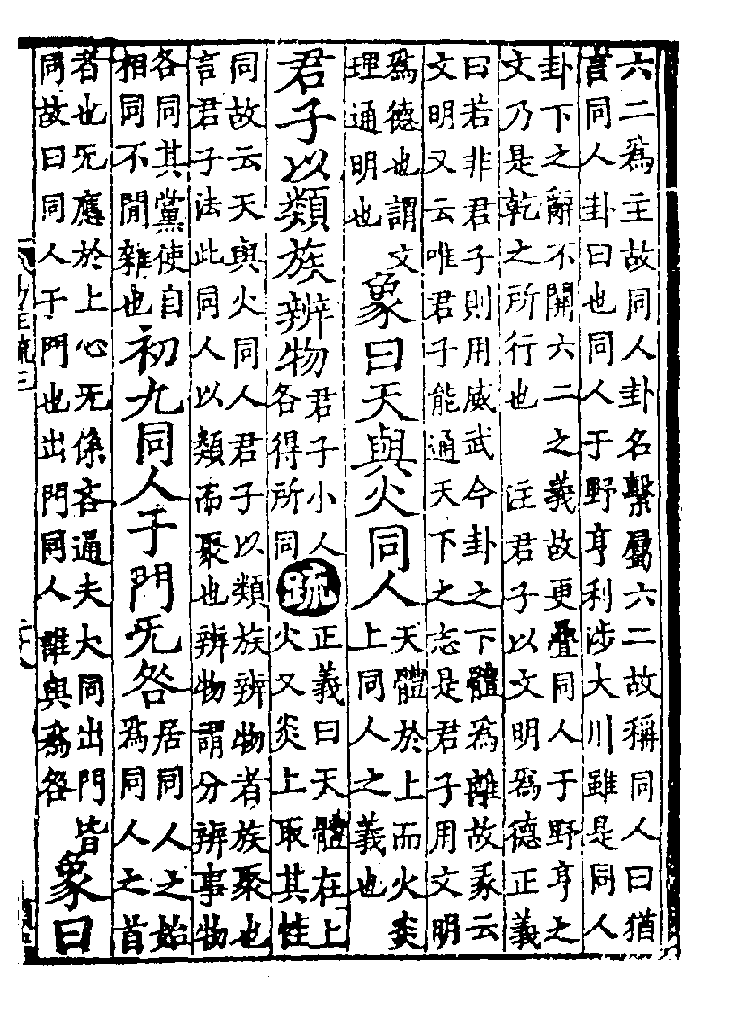 六二爲主故同人卦名繫屬六二故稱同人曰猶
言同人卦曰也同人于野亨利涉大川雖是同人
卦下之辭不關六二之義故更疊同人于野亨之
文乃是乾之所行也　注君子以文明爲德正義
曰若非君子則用威武今卦之下體爲離故彖云
文明又云唯君子能通天下之志是君子用文明
爲德也謂文
理通明也
象曰天與火同人
天體於上而火炎
上同人之義也
君子以類族辨物
君子小人
各得所同
疏
正義曰天體在上
火又炎上取其性
同故云天與火同人君子以類族辨物者族聚也
言君子法此同人以類而聚也辨物謂分辨事物
各同其黨使自
相同不閒雜也
初九同人于門无咎
居同人之始
爲同人之首
者也无應於上心无係吝通夫大同出門皆
同故曰同人于門也出門同人誰與爲咎
象曰